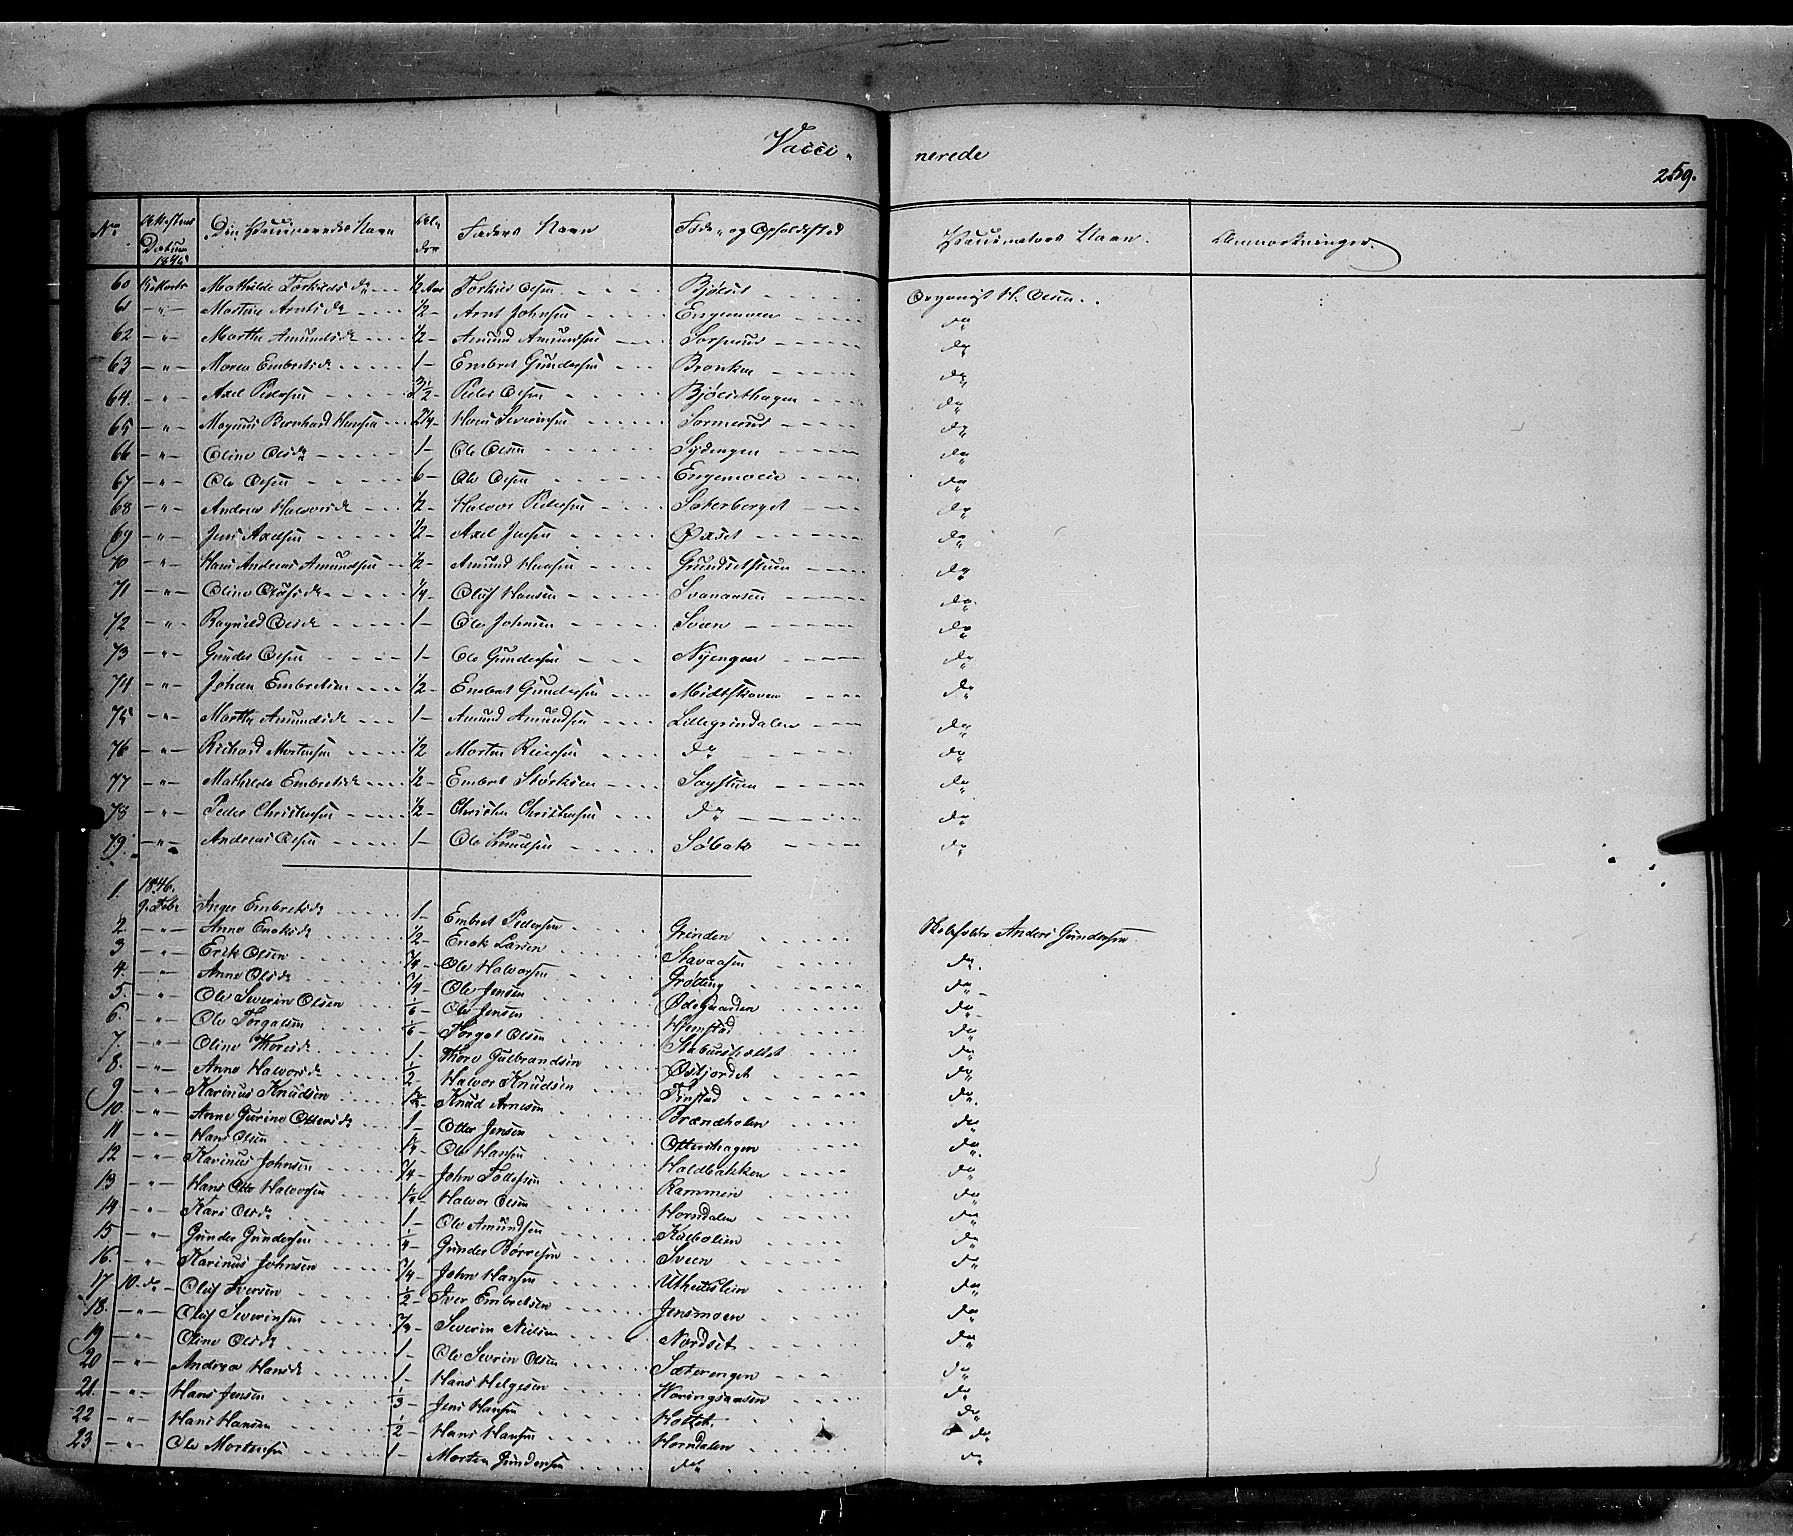 Vacci-nerede
259.
No Attestens Datum 1845 Den Vaccineredes Navn Alder Faders Navn Føde- og Opholdssted Vaccinateurs Navn. Anmærkninger
60 Mathilde Torkilds d. ½ Aar Torkild Olsen Bjølset Organist H. Olsen
61 -"- Arnts d. ½ - Arnt Johnsen Engemoen do
62 -"- Marthe Amunds d. ½ - Amund Amundsen Sorperud do
63 -"- Maren Embrets d. 1 - Embret Gundersen Bronken do
64. -"- Axel Pedersen Peder Olsen Bjølsethagen do
65 -"- Magnus Bernhard Hansen 2¼ - Hans Severinsen Sormerud do
66 -"- Oline Olsd. 1 - Ole Olsen Sydengen do
67 -"- Ole Olsen 6 - Ole Olsen Engemoen do
68 -"- Andrea Halvors d. ½ - Halvor Pedersen Sæterberget do
69 -"- Jens Axelsen ½ - Axel Jensen Øxset do
70 -"- Hans Andreas Amundsen ½ - Amund Hansen Grundsetstuen do
71 -"- Oline Olufs d. ¼ - Oluf Hansen Svenaasen do
72 -"- Ragnild Olsd. 1 - Ole Johnsen Sveen do
73 -"- Gunder Olsen 1 - Ole Gundersen Nyengen do
74 -"- Johan Embretsen ½ - Embret Gundersen Midtskoven do
75 -"- Marthe Amunds d. 1 - Amund Amundsen Lillegrindalen do
76 -"- Richard Mortensen ½ - Morten Reiersen do do
77 -"- Mathilde Embrets d. ½ - Embret Størksen Sagstuen do
78 -"- Peder Christensen ½ - Christen Christensen do do
79. -"- Andreas Olsen 1 - Ole Knudsen Søbak do
1. 1846. 9. Febr Inger Embrets d. 1 - Embret Pedersen Grinden Skoleholder Anders Gundersen
2. -"- Anne Eriks d. ½ - Erik Larsen Stavaasen do
3 -"- Erik Olsen ¾ - Ole Halvorsen Grøtting do
4. -"- Anne Olsd. ¾ - Ole Jensen Ødegaarden do
5. -"- Ole Severin Olsen 1/6 - Ole Jensen Hjemstad do
6. -"- Ole Torgalsen 1/6 - Torgal Olsen Staburstrættet do
7. -"- Oline Thores d. 1 - Thore Gulbrandsen Østjordet do
8. -"- Anne Halvors d. ½ - Halvor Knudsen Finstad do
9 -"- Karinus Knudsen 1½ - Knud Arnesen Brændholen do
10. -"- Anne Gurine Otters d. 1 - Otter Jensen Ottershagen do
11 -"- Hans Olsen Ole Hansen Haldbakken do
12 -"- Karinus Johnsen ¾ - John Tollefsen Rammen do
13 -"- Hans Otto Halvorsen Halvor Olsen Horndalen do
14 -"- Kari Olsd. 1 - Ole Amundsen Kaabolien do
15 -"- Gunder Gundersen ¼ - Gunder Børresen Sveen do
16. -"- Karinus Johnsen ¾ - John Hansen do
17 10. do Oluf Iversen ½ - Iver Embretsen Jensmoen do
18. -"- Oluf Severinsen Severin Nielsen Nordset do
19 -"- Oline Olsd. 1 - Ole Severin Olsen Sæterengen do
20 -"- Andrea Hansd. 1 - Hans Helgesen Horingsaasen do
21. -"- Hans Jensen 1/3 - Jens Hansen Hottet. do
22 -"- Hans Hansen ½ - Hans Hansen Horndalen do
23 -"- Ole Mortensen 1 - Morten Gundersen do do